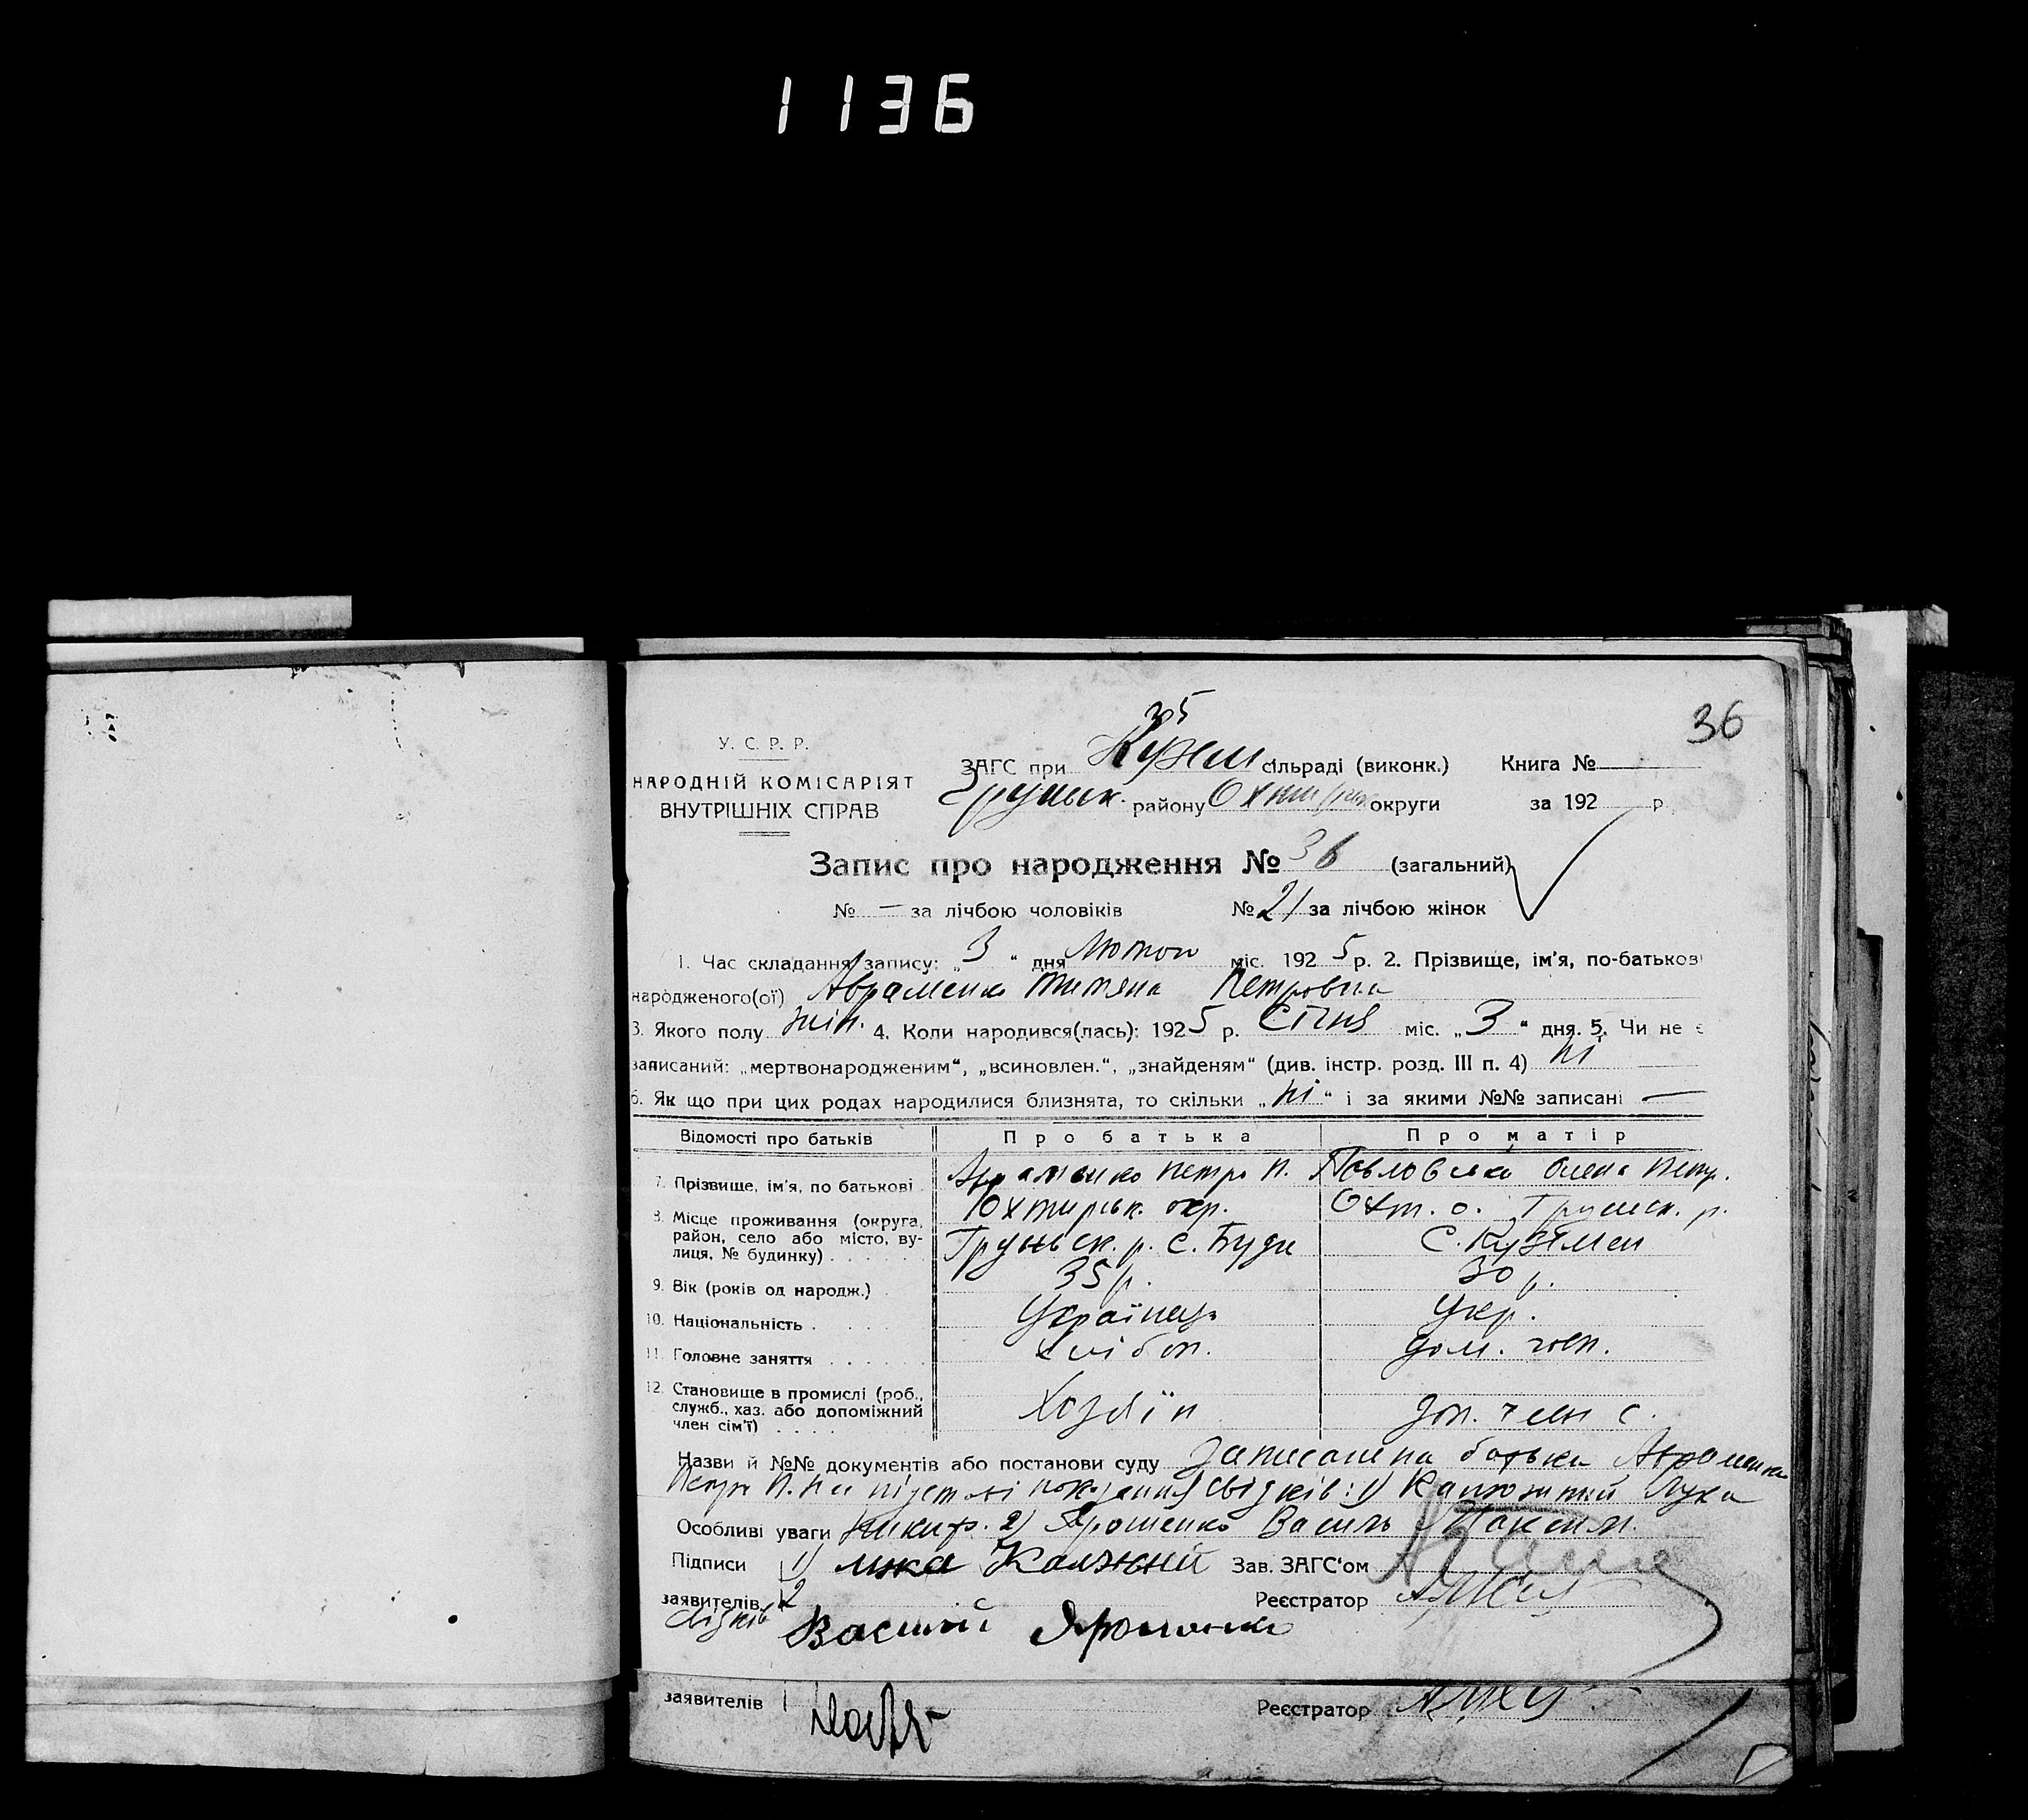 1136
35
36
У. С. Р. Р.
НАРОДНІЙ КОМІСАРІЯТ
ВНУТРІШНІХ СПРАВ
ЗАГС при сільраді (виконк.) Книга №
Груньск. району Охтирськ округи за 192 р.
Запис про народження № 36 (загальний)
№ — за лічбою чоловіків № 21 за лічбою жінок
1. Час складання запису: „3“ дня Лютого міс. 1925 р. 2. Прізвище, ім'я, по-батькові
народженого(ої) Авраменко Титяна Петровна
3. Якого полу жін. 4. Коли народився(лась): 1925 р. Січня міс. „3“ дня. 5. Чи не є
записаний: „мертвонародженим“, „всиновлен.“, „знайденям“ (див. інстр. розд. III п. 4) ні
6. Як що при цих родах народилися близнята, то скільки „ні“ і за якими №№ записані —
Відомості про батьків Про батька Про матір
7. Прізвище, ім'я, по батькові Авраменко Петро П. Павловська Олена Петр.
8. Місце проживання (округа, район, село або місто, вулиця, № будинку) Охтирськ. окр. Охт. о. Груньск. р.
Груньск. р. с. Буди С. Кужелі
9. Вік (років од народж.) 35 р. 30 р.
10. Національність Українець Укр.
11. Головне заняття хлібор. дом. госп.
12. Становище в промислі (роб., служб., хаз. або допоміжний член сім'ї) Хозяїн доп. член с.
Назви й №№ документів або постанови суду Записано на батька Авраменка
Петра П. на підставі показання свідків: 1) Калюжний Лука
Особливі уваги Никиф. 2) Ярошенко Василь Максим.
Підписи 1) лука Калжний Зав. ЗАГС'ом
заявителів 2 Реєстратор
свідків Василий Ярошенко
заявителів 1 Реєстратор